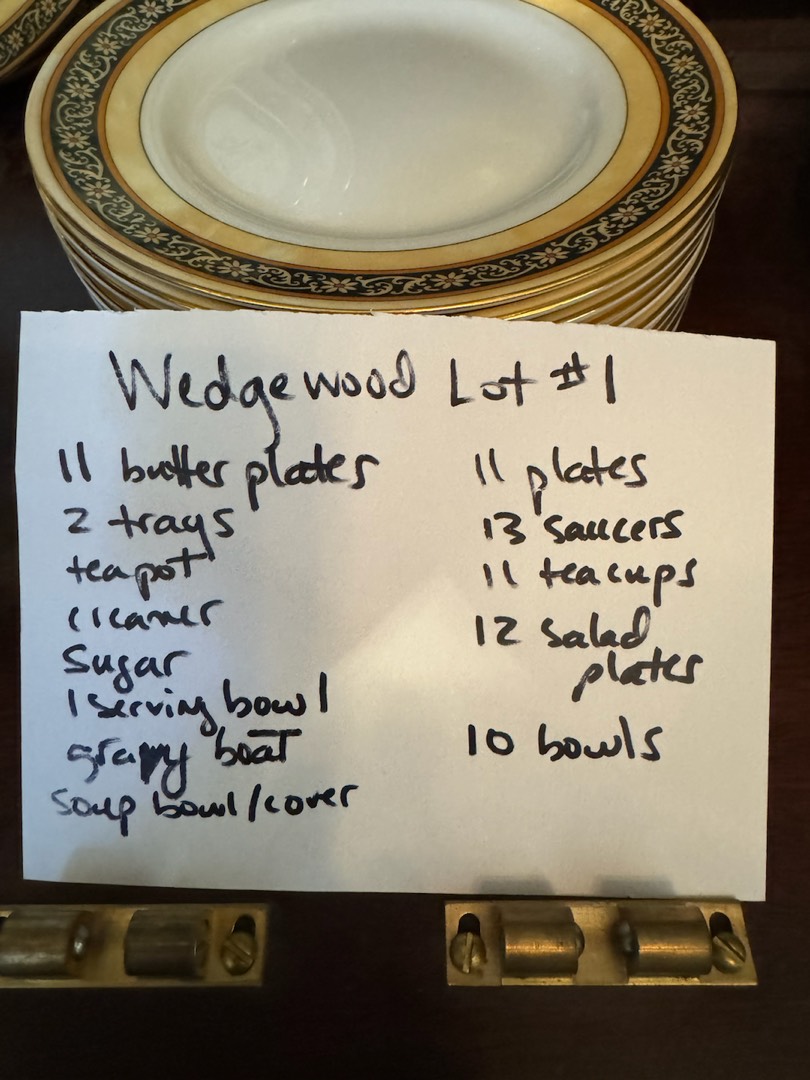 Wedgewood Lot #1
11 butter plates
2 trays
teapot
creamer
Sugar
1 serving bowl
gravy boat
Soup bowl/cover
11 plates
13 saucers
11 teacups
12 salad
plates
10 bowls